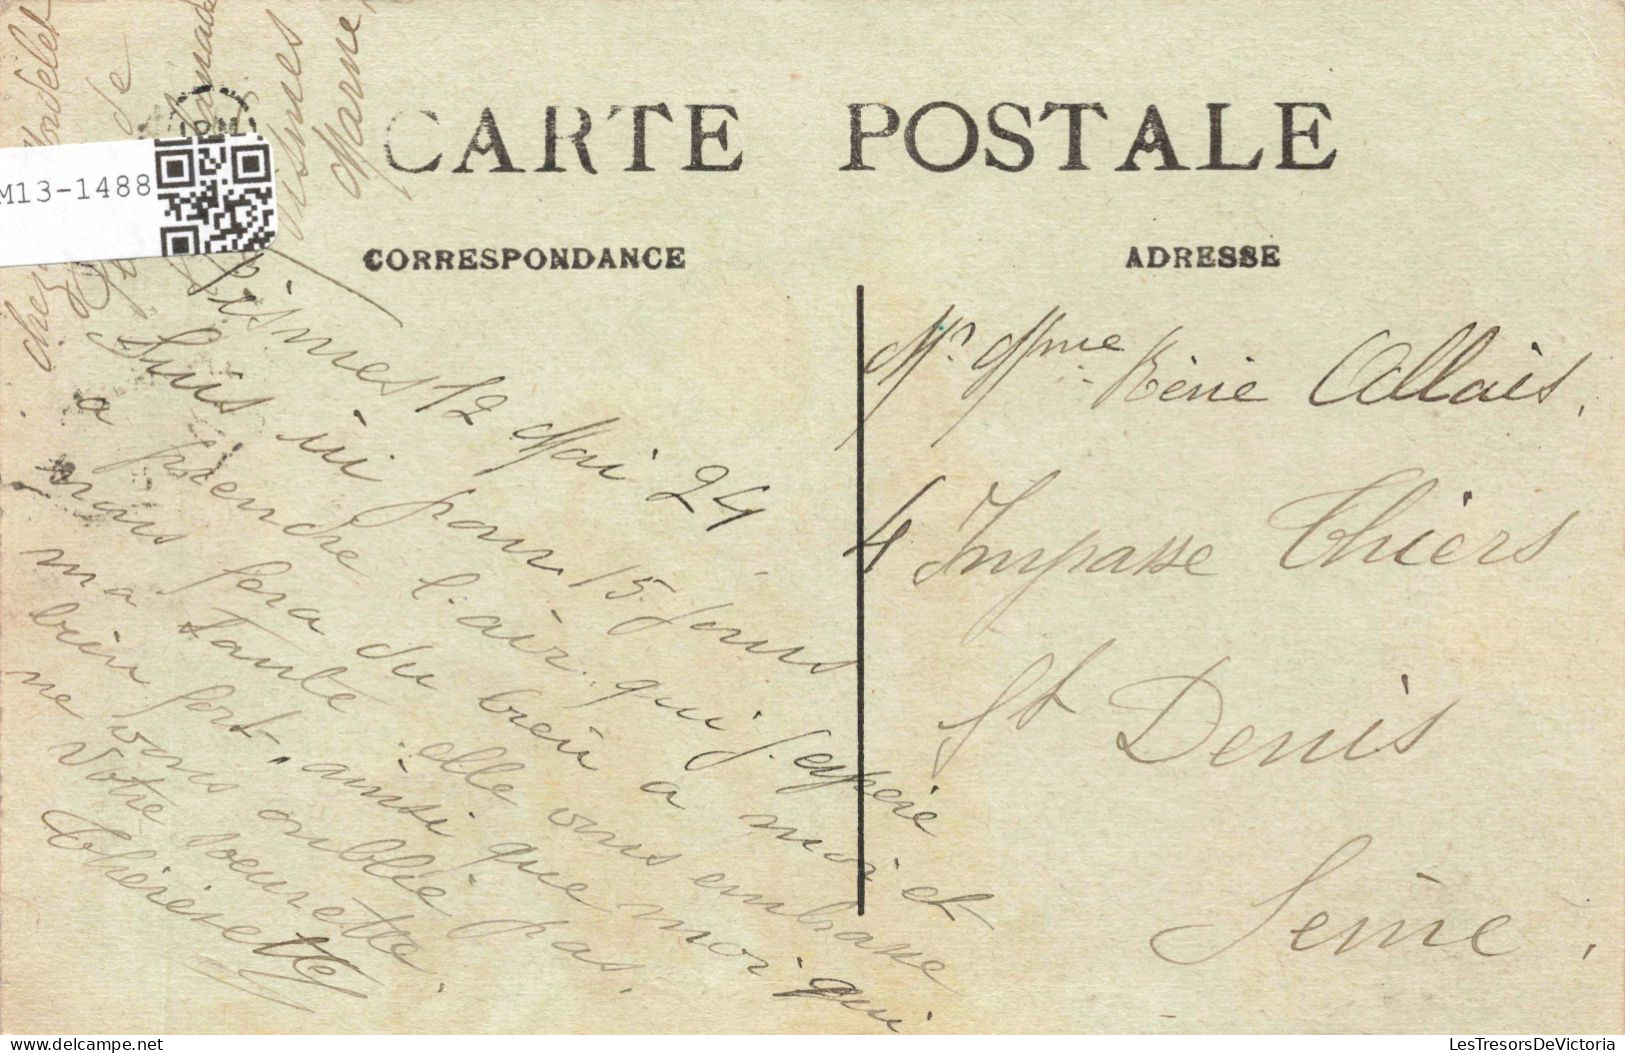 CARTE POSTALE
CORRESPONDANCE
ADRESSE
M13-1488
chez
Mondelet
de
Marne
Fismes 12 Mai 24
Suis ici pour 15 jours
a prendre l'air, qui j'espère
nous fera du bien a moi et
ma Tante elle vous embrasse
bien fort, ainsi que moi qui
ne vous oublie pas.
Votre soeurette.
Thérienette
Mr Mme Rénie Allais,
4 Impasse Thiers
St Denis
Seine.
LesTresorsDeVictoria